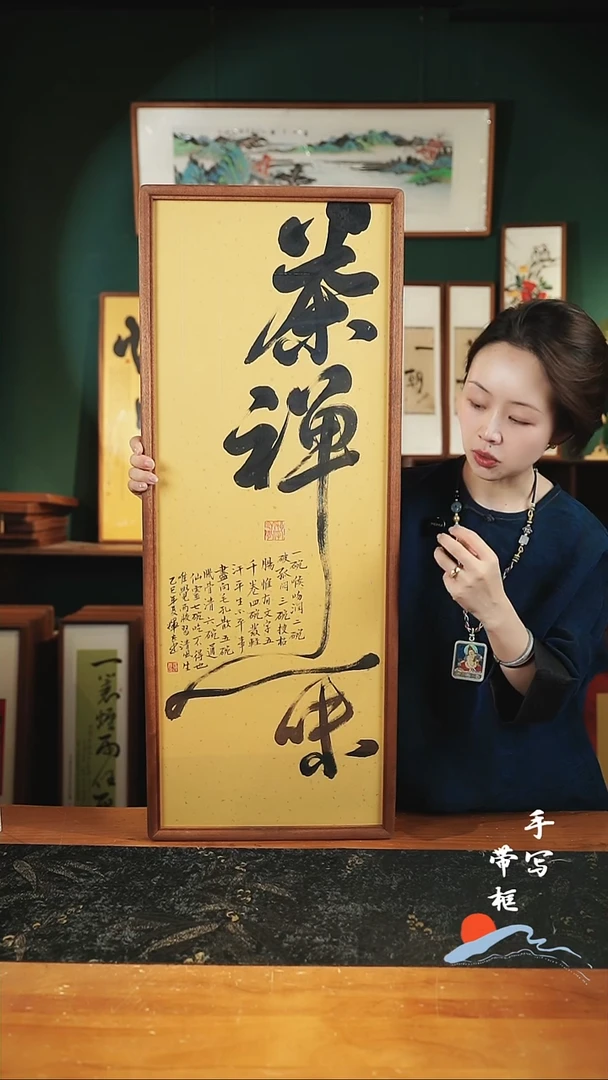 茶禅一味
一碗喉吻潤二碗
破孤悶三碗搜枯
腸惟有文字五
千卷四碗發輕
汗平生不平事
盡向毛孔散五碗
肌骨清六碗通
仙靈七碗吃不得也
唯覺兩腋習習清風生
乙巳年夏
一蓑煙雨任
手写
带框